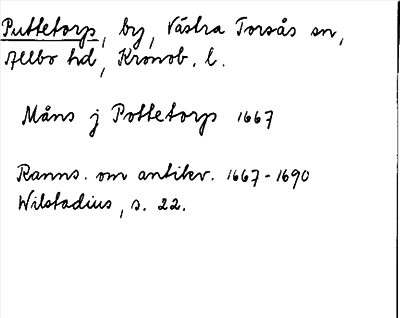 Puttetorp, by, Västra Torsås sn,
Allbo hd, Kronob. l.
Måns j Pottetorp 1667
Ranns. om antikv. 1667-1690
Wilstadius, s. 22.